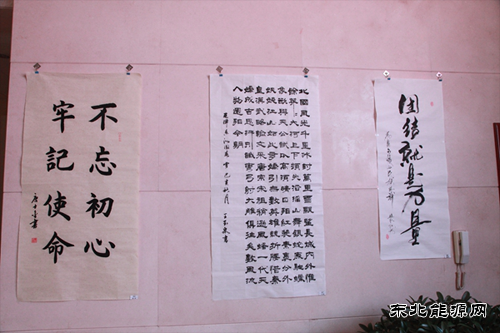 不忘初心
牢記使命
北國風光千里冰封萬里雪飄望長城内外惟
餘莽莽大河上下頓失滔滔山舞銀蛇原馳蠟
象欲與天公試比高須晴日看紅裝素裹分外
妖嬈江山如此多嬌引無數英雄競折腰惜秦
皇漢武略輸文采唐宗宋祖稍遜風騷一代天
驕成吉思汗只識彎弓射大雕俱往矣數風流
人物還看今朝
团结就是力量
东北能源网